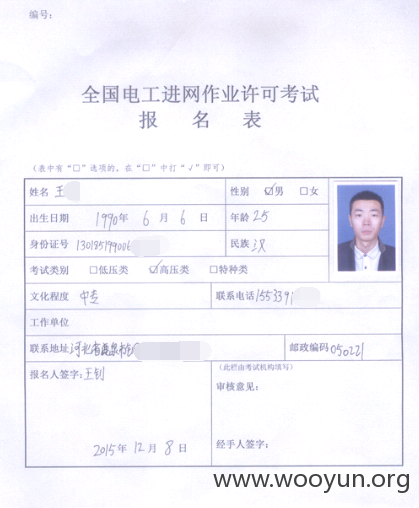 编号:
全国电工进网作业许可考试
报 名 表
(表中有“□”选项的,在“□”中打“√”即可)
姓名 王 性别 ☑男 □女
出生日期 1990年 6 月 6 日 年龄 25
身份证号 130185199006 民族 汉
考试类别 □低压类 ☑高压类 □特种类
文化程度 中专 联系电话 1553391
工作单位
联系地址 河北省鹿泉 邮政编码 050221
报名人签字: 王钊 (此栏由考试机构填写)
审核意见:
2015年 12 月 8 日 经手人签字:
www.wooyun.org